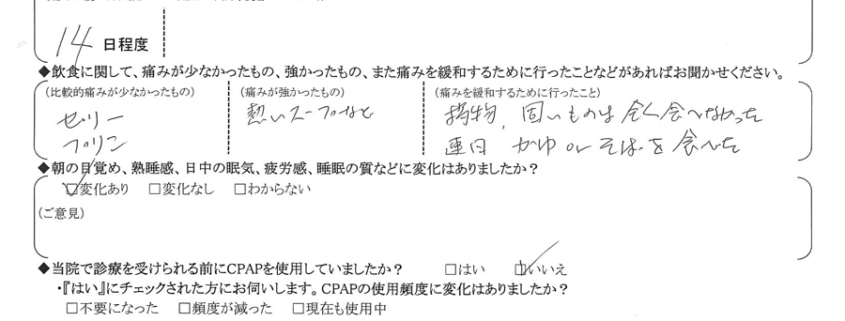 14 日程度
◆飲食に関して、痛みが少なかったもの、強かったもの、また痛みを緩和するために行ったことなどがあればお聞かせください。
(比較的痛みが少なかったもの) (痛みが強かったもの) (痛みを緩和するために行ったこと)
ゼリー 熱いスープなど 揚物、固いものは全く食べなかった
プリン 連日 かゆ or そばを食べた
◆朝の目覚め、熟睡感、日中の眠気、疲労感、睡眠の質などに変化はありましたか？
☑変化あり □変化なし □わからない
(ご意見)
◆当院で診療を受けられる前にCPAPを使用していましたか？ □はい ☑いいえ
・『はい』にチェックされた方にお伺いします。CPAPの使用頻度に変化はありましたか？
□不要になった □頻度が減った □現在も使用中